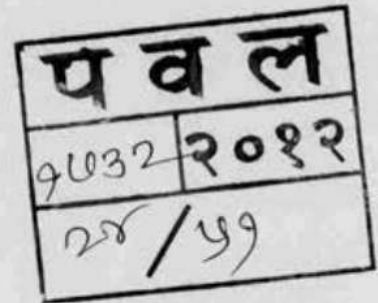 प व ल
१७३२ २०१२
२४ / ५१